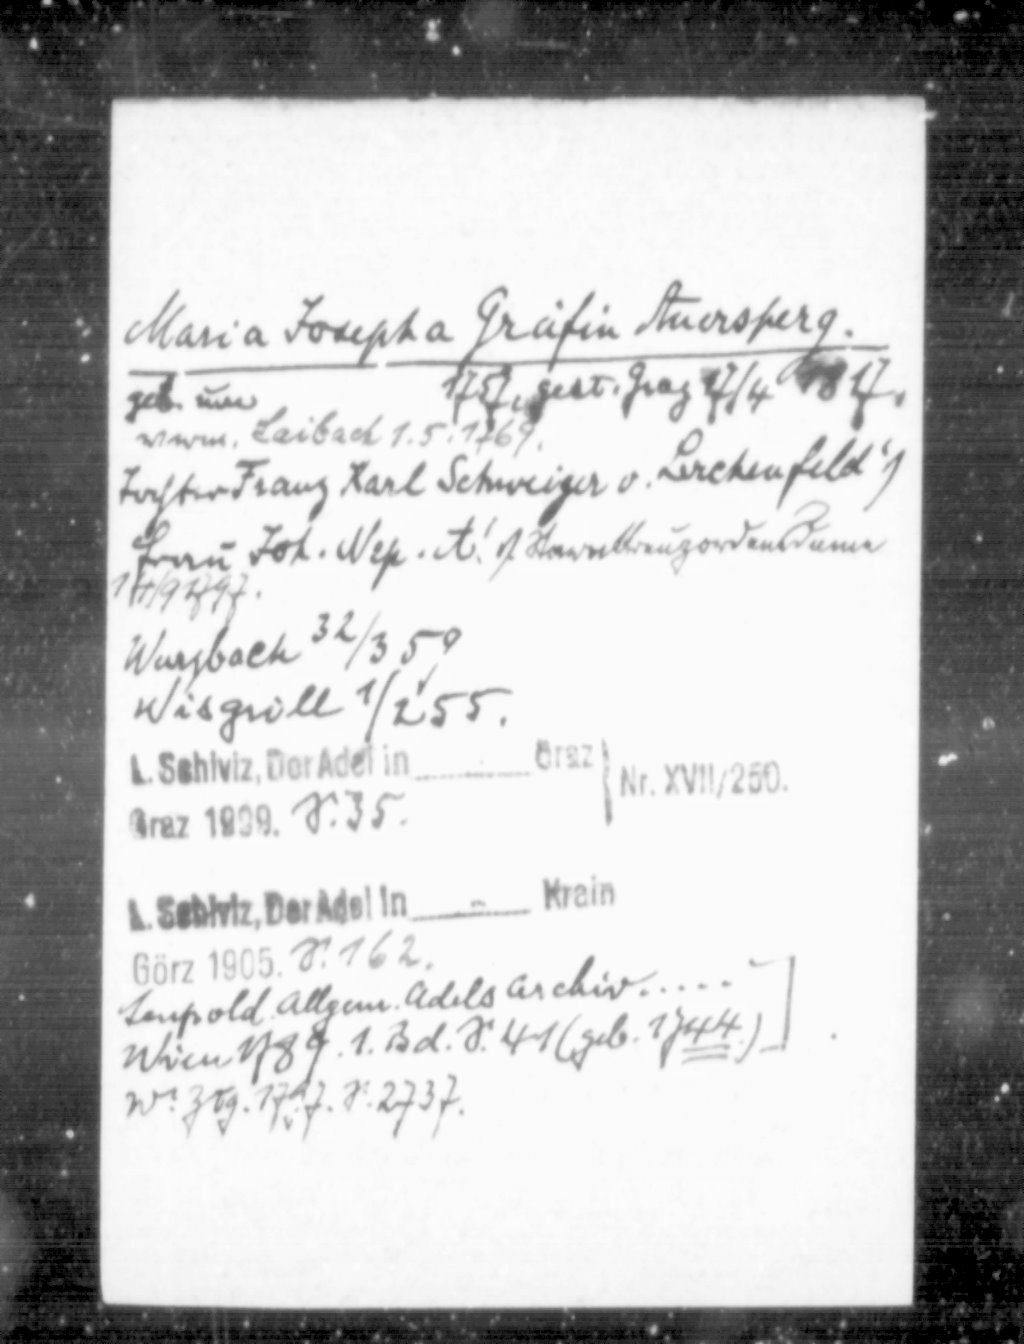 Maria Josepha Gräfin Auersperg.
geb. um 1757, gest. Graz 17/4 1817.
verm. Laibach 1.5.1769.
Tochter Franz Karl Schweiger v. Lerchenfeld's
Frau Joh. Nep. A!s Sternkreuzordens Dame
14/9 1797.
Wurzbach 32/359
Wisgrill 1/255.
L. Schiviz, Der Adel in ........ Graz
Graz 1909. S. 35. Nr. XVII/250.
L. Schiviz, Der Adel in ........ Krain
Görz 1905. S. 162.
Leupold Allgem. Adels Archiv.....
Wien 1789. 1. Bd. S. 41 (geb. 1744.)
Wr. Ztg. S. 2737.